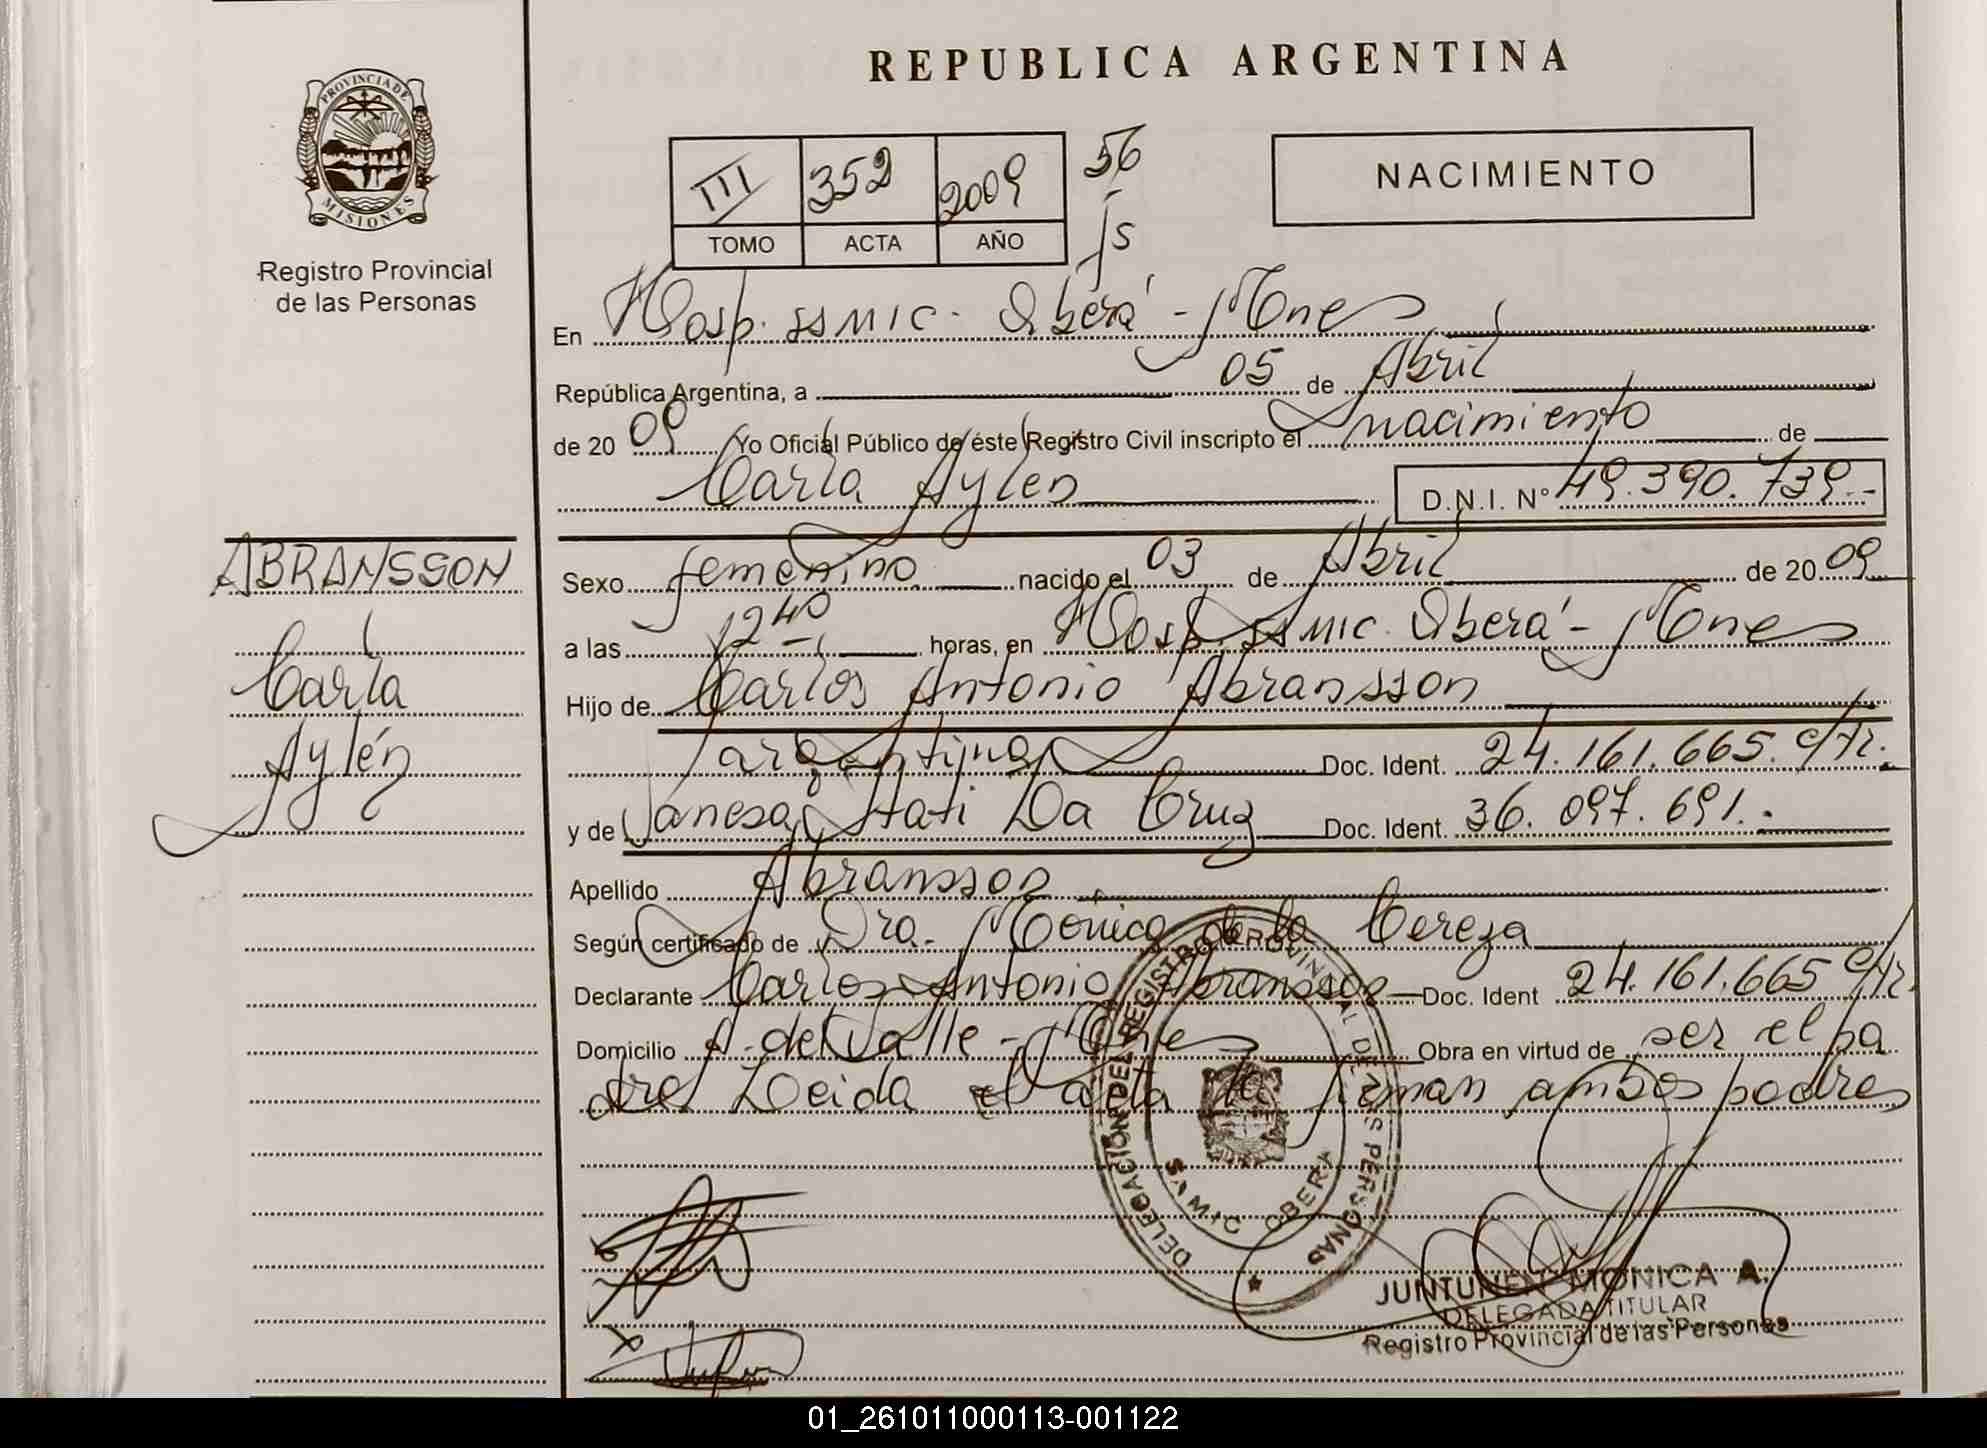 REPUBLICA ARGENTINA
PROVINCIA DE
MISIONES
Registro Provincial
de las Personas
III 352 2009 56
TOMO ACTA AÑO js
NACIMIENTO
En Hosp. SSMIC - Oberá - Mnes
República Argentina, a 05 de Abril
de 20 09 Yo Oficial Público de éste Registro Civil inscripto el nacimiento de
Carla Aylen D.N.I. Nº 49.390.739.-
ABRANSSON
Carla
Aylén
Sexo femenino nacido el 03 de Abril de 20 09
a las 12 40 horas, en Hosp. SSMIC. Oberá - Mnes
Hijo de Carlos Antonio Abransson
argentino Doc. Ident. 24.161.665.
y de Vanesa Itati Da Cruz Doc. Ident. 36.097.691.-
Apellido Abransson
Según certificado de Dra. Mónica de la Cereza
Declarante Carlos Antonio Abransson Doc. Ident 24.161.665
Domicilio A. del Valle - Mnes Obra en virtud de ser el pa
dre Leida el acta la firman ambos padres
DELEGACIÓN DEL REGISTRO PROVINCIAL DE LAS PERSONAS
SAMIC OBERA
JUNTUNEN MONICA A.
DELEGADA TITULAR
Registro Provincial de las Personas
01_261011000113-001122